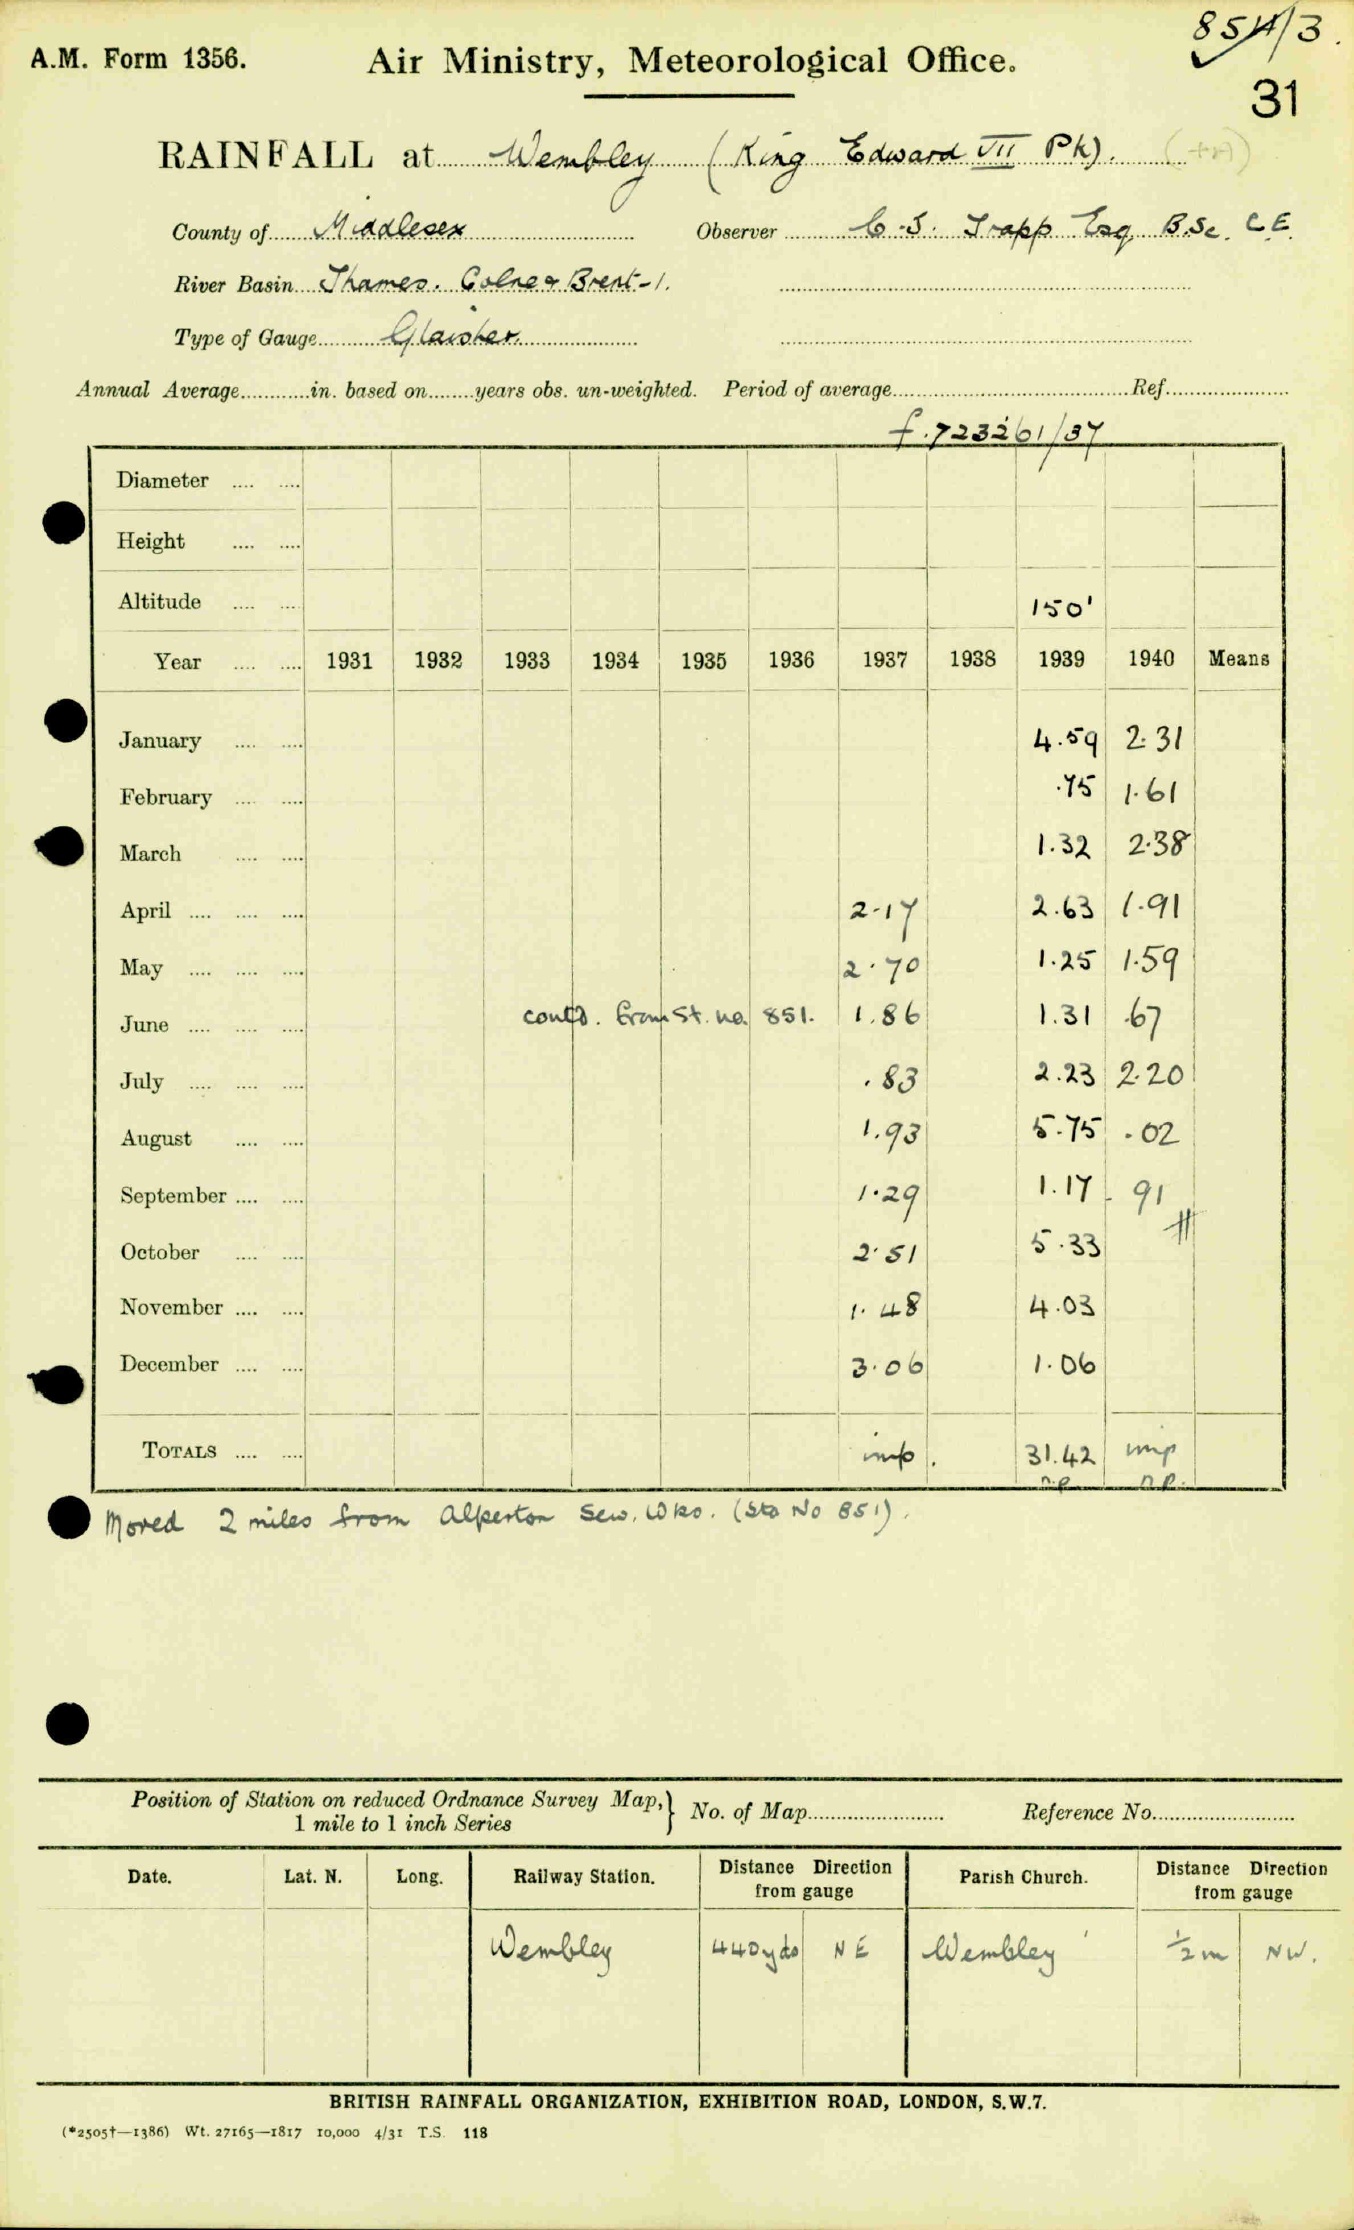 854/3.
A.M. Form 1356. Air Ministry, Meteorological Office.
31
RAINFALL at Wembley (King Edward VII Pk).
County of Middlesex Observer C. S. Trapp Esq. B.Sc. C.E.
River Basin Thames. Colne & Brent-1.
Type of Gauge Glaisher
Annual Average............in. based on........years obs. un-weighted. Period of average............Ref............
f.723261/37
Diameter .... ....
Height .... ....
Altitude .... .... 150'
Year .... .... 1931 1932 1933 1934 1935 1936 1937 1938 1939 1940 Means
January .... .... 4.59 2.31
February .... .... .75 1.61
March .... .... 1.32 2.38
April .... .... .... 2.17 2.63 1.91
May .... .... .... 2.70 1.25 1.59
June .... .... .... contd. from St. no. 851. 1.86 1.31 .67
July .... .... .... .83 2.23 2.20
August .... .... 1.93 5.75 .02
September .... .... 1.29 1.17 .91
October .... .... 2.51 5.33
November .... .... 1.48 4.03
December .... .... 3.06 1.06
TOTALS .... .... imp. 31.42 imp
n.p. n.p.
Moved 2 miles from Alperton Sew. Wks. (Sta No 851).
Position of Station on reduced Ordnance Survey Map, } No. of Map............ Reference No............
1 mile to 1 inch Series
Date. Lat. N. Long. Railway Station. Distance Direction Parish Church. Distance Direction
from gauge from gauge
Wembley 440yds NE Wembley ½m NW.
BRITISH RAINFALL ORGANIZATION, EXHIBITION ROAD, LONDON, S.W.7.
(*2505†—1386) Wt. 27165—1817 10,000 4/31 T.S. 118